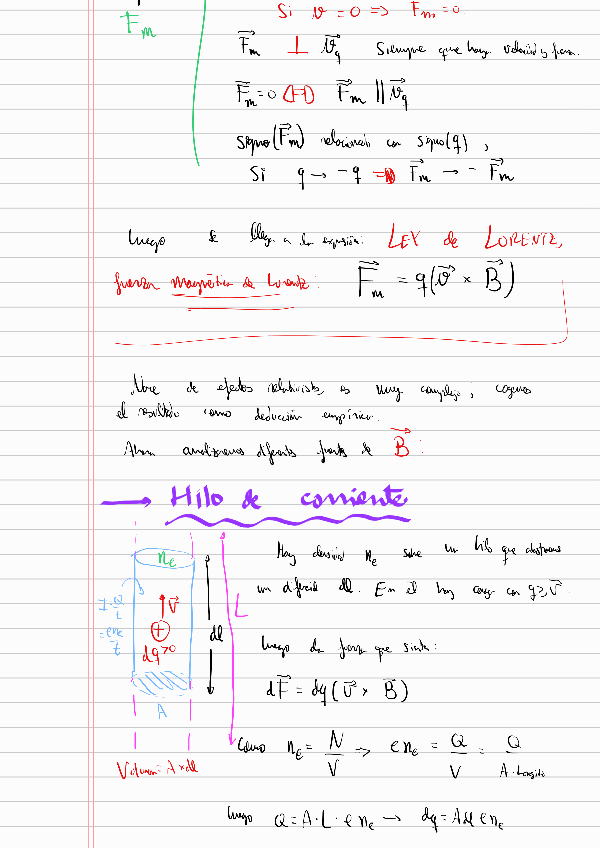 Si v = 0 ⇒ Fm = 0
Fm
Fm ⊥ vq Siempre que haya velocidad y fuerza.
Fm = 0 ⟺ Fm ∥ vq
signo(Fm) relacionado con signo(q),
Si q → -q ⇒ Fm → - Fm
Luego se llega a la expresión: LEY de LORENTZ,
fuerza magnética de Lorentz: Fm = q(v × B)
de efectos relativistas, es muy complejo; cogemos
el resultado como deducción empírica.
Ahora analizaremos diferentes fuentes de B:
→ Hilo de corriente
Hay densidad ne sobre un hilo que
un diferencial dl. En el hay carga con q y v
Luego la fuerza que siente:
dF = dq(v × B)
ne
v
+
dq>0
A
dl
L
Volumen: A × dl
Como ne = N/V → e ne = Q/V = Q/A·Longitud
Luego Q = A·L·e ne → dq = A dl e ne